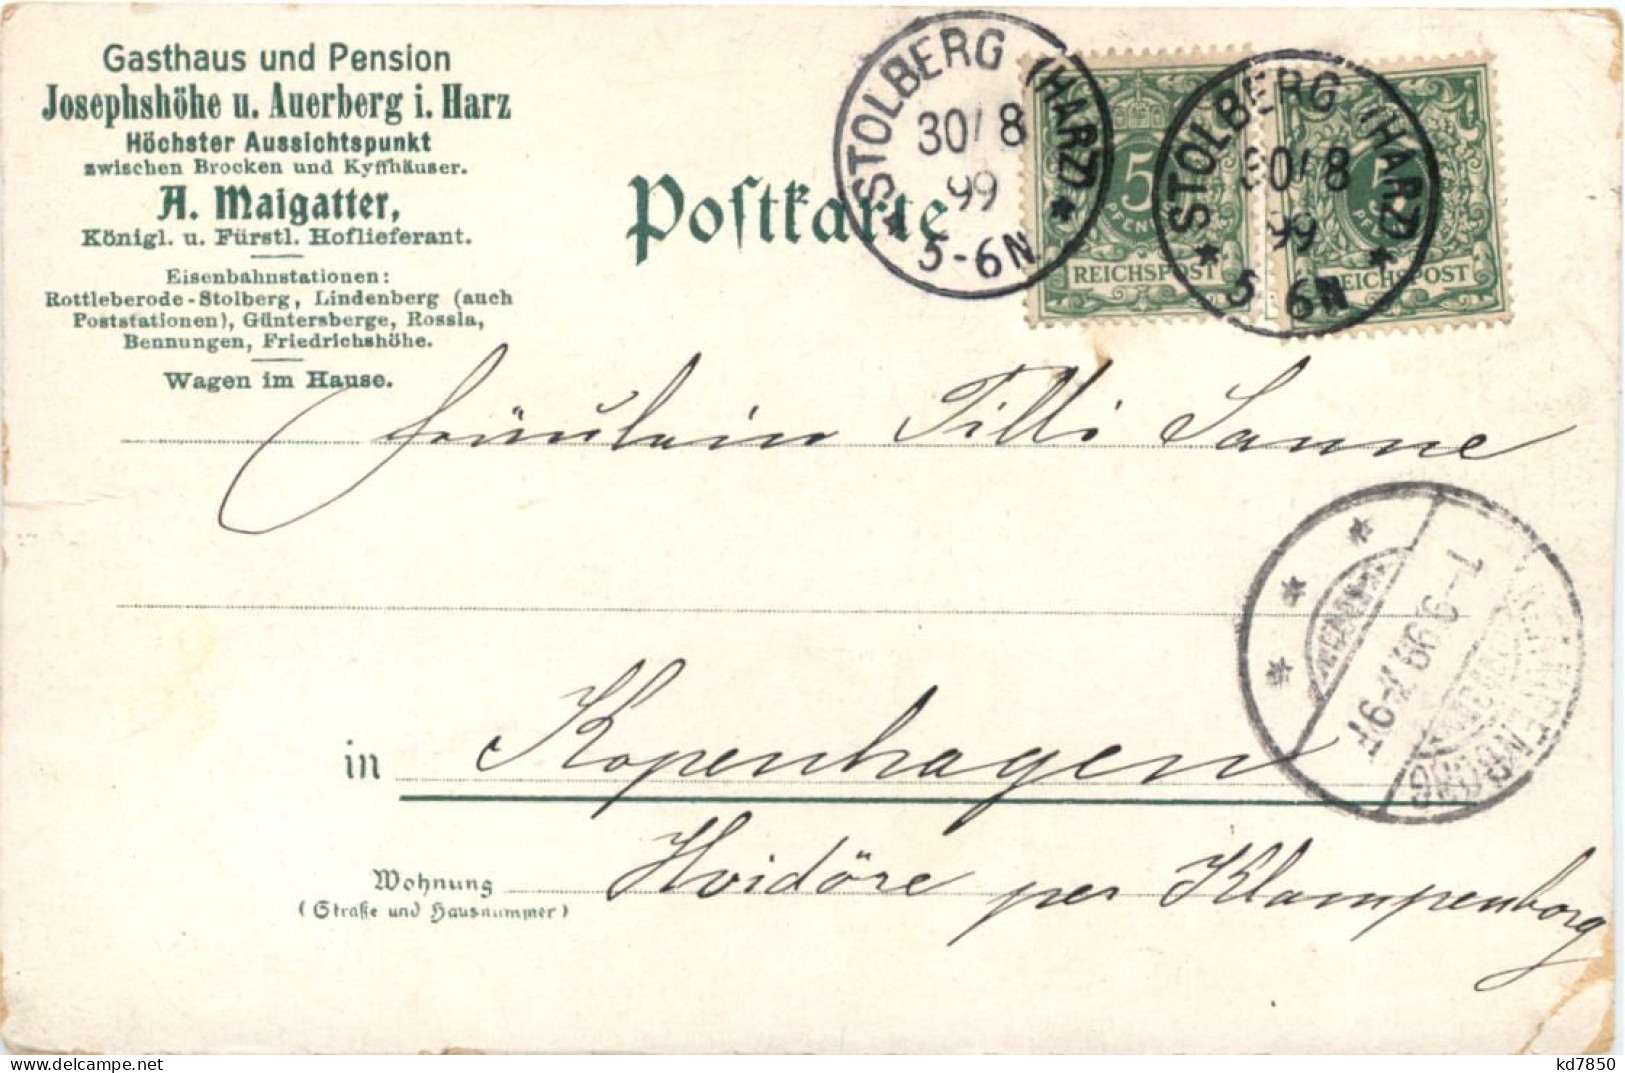 Gasthaus und Pension
Josephshöhe u. Auerberg i. Harz
Höchster Aussichtspunkt
zwischen Brocken und Kyffhäuser.
A. Maigatter,
Königl. u. Fürstl. Hoflieferant.
Eisenbahnstationen:
Rottleberode-Stolberg, Lindenberg (auch
Poststationen), Güntersberge, Rossla,
Bennungen, Friedrichshöhe.
Wagen im Hause.
Postkarte
STOLBERG (HARZ)
30/8
99
5-6N
5
PFENNIG
REICHSPOST
STOLBERG (HARZ)
30/8
99
5-6N
5
REICHSPOST
Fräulein Tilli Sanne
in Kopenhagen
Wohnung Hvidöre per Klampenborg
(Straße und Hausnummer)
1-9 99
KLAMPENBORG
kd7850